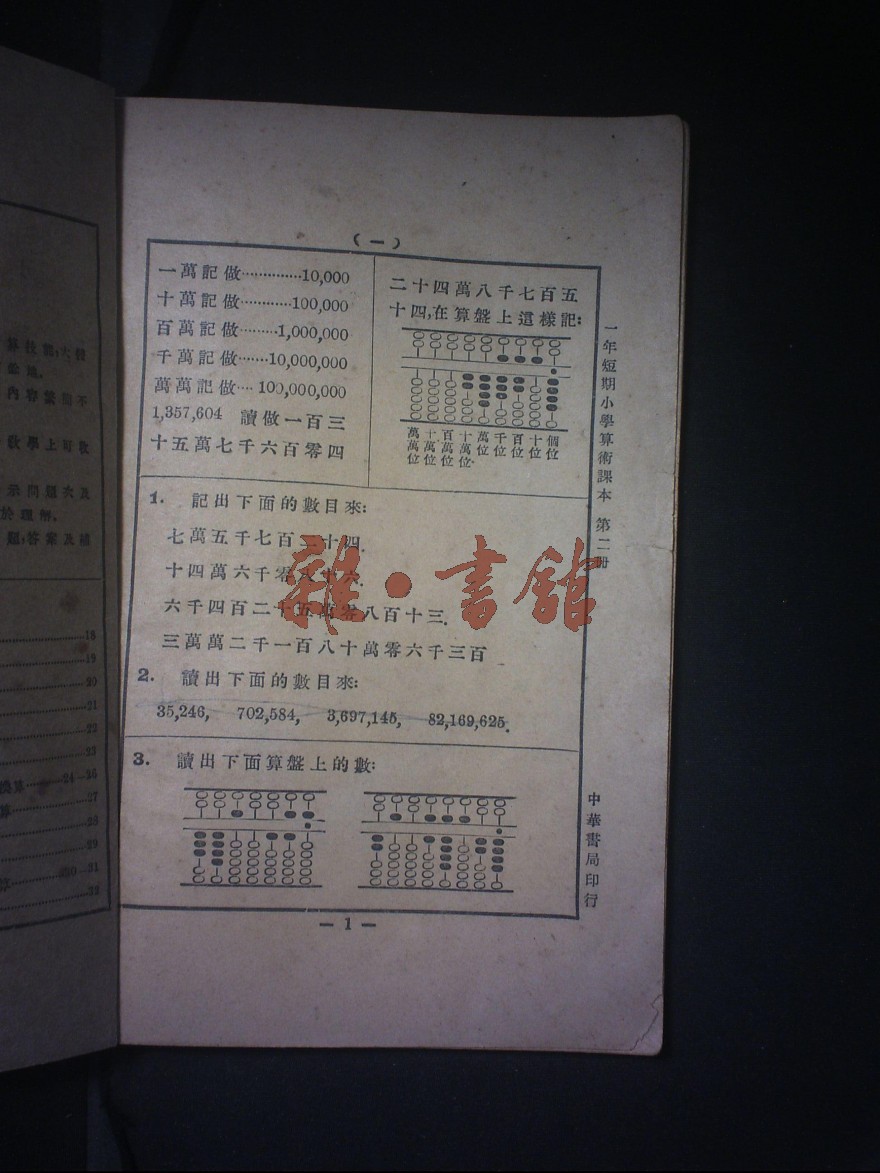 (一)
一萬記做··············10,000
十萬記做············100,000
百萬記做·········1,000,000
千萬記做·······10,000,000
萬萬記做····100,000,000
1,357,604 讀做一百三
十五萬七千六百零四
二十四萬八千七百五
十四,在算盤上這樣記:
萬萬位 十萬萬位 百萬位 十萬位 萬位 千位 百位 十位 個位
1. 記出下面的數目來:
七萬五千七百三十四.
十四萬六千零八十六.
六千四百二十五萬零八百十三.
三萬萬二千一百八十萬零六千三百
2. 讀出下面的數目來:
35,246, 702,584, 3,697,145, 82,169,625.
3. 讀出下面算盤上的數:
— 1 —
一年短期小學算術課本 第二册
中華書局印行
雜·書館
內容
敎學上可收
示問題次及
於理解.
題;答案及補
18
19
20
21
22
23
24—26
27
28
29
31
33